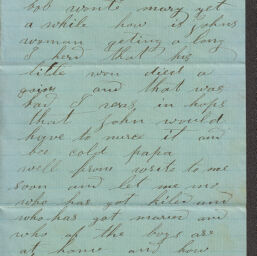 bob wente mary yet
a while how is Johns
woman geting a long
I herd that his
little won died a
and that was
bad I was in hops
that John would
have to nurce it and
bee cold papa
well prove write to me
soon and let me no
who has got kiled and
who has got maried and
who of the boys are
at home and how